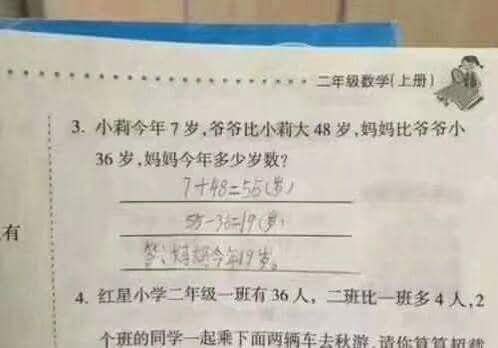 二年级数学(上册)
3. 小莉今年7岁,爷爷比小莉大48岁,妈妈比爷爷小
36岁,妈妈今年多少岁数?
7+48=55(岁)
55-36=19(岁)
答:妈妈今年19岁。
有
4. 红星小学二年级一班有36人,二班比一班多4人,2
个班的同学一起乘下面两辆车去秋游,请你算算超载